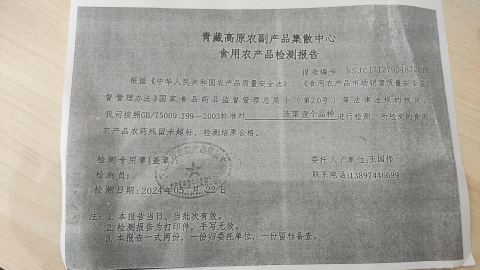 青藏高原农副产品集散中心
食用农产品检测报告
报告编号: NSJC
根据《中华人民共和国农产品质量安全法》、《食用农产品市场销售质量安全监
督管理办法》国家食品药品监督管理总局令(第20号)等法律法规的规定,
我司按照GB/T5009.199—2003标准对 进行检测,所检测的食用
农产品农药残留未超标,检测结果合格。
检测专用章(盖章) 委托人/单位:王国伟
检测员: 联系电话:13897446699
检测日期:2024年05月22日
注: 1.本报告当日、当批次有效。
2.检测报告为打印件,手写无效。
3.本报告一式两份,一份归委托单位,一份留档备查。